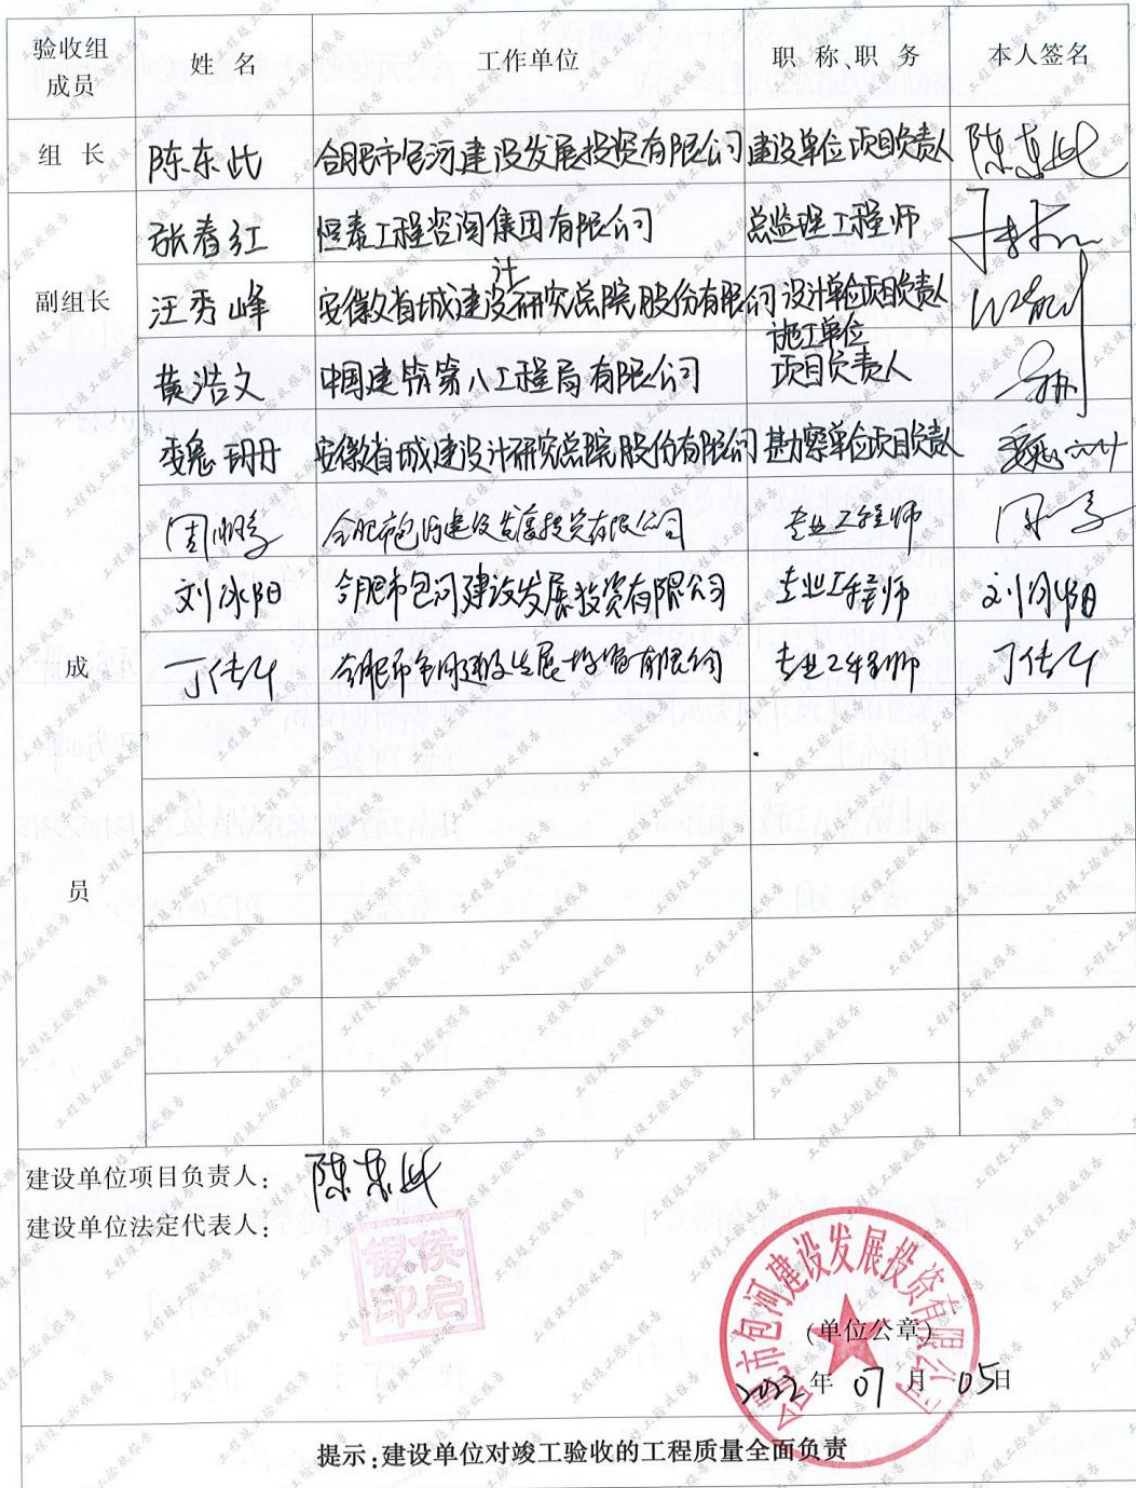 验收组成员 姓 名 工作单位 职 称、职 务 本人签名
组 长 陈东此 合肥市包河建设发展投资有限公司 建设单位项目负责人 陈东此
张春红 恒泰工程咨询集团有限公司 总监理工程师
副组长 汪秀峰 安徽省城建设计研究总院股份有限公司 设计单位项目负责人
黄浩文 中国建筑第八工程局有限公司 施工单位项目负责人
魏玥丹 安徽省城建设计研究总院股份有限公司 勘察单位项目负责人
周鹏 合肥市包河建设发展投资有限公司 专业工程师
刘冰阳 合肥市包河建设发展投资有限公司 专业工程师 刘冰阳
成 丁传 合肥市包河建设发展投资有限公司 专业工程师 丁传
员
建设单位项目负责人: 陈东此
建设单位法定代表人:
银侯
印启
合肥市包河建设发展投资有限公司
(单位公章)
2022年 07月 05日
提示:建设单位对竣工验收的工程质量全面负责
工程竣工验收报告